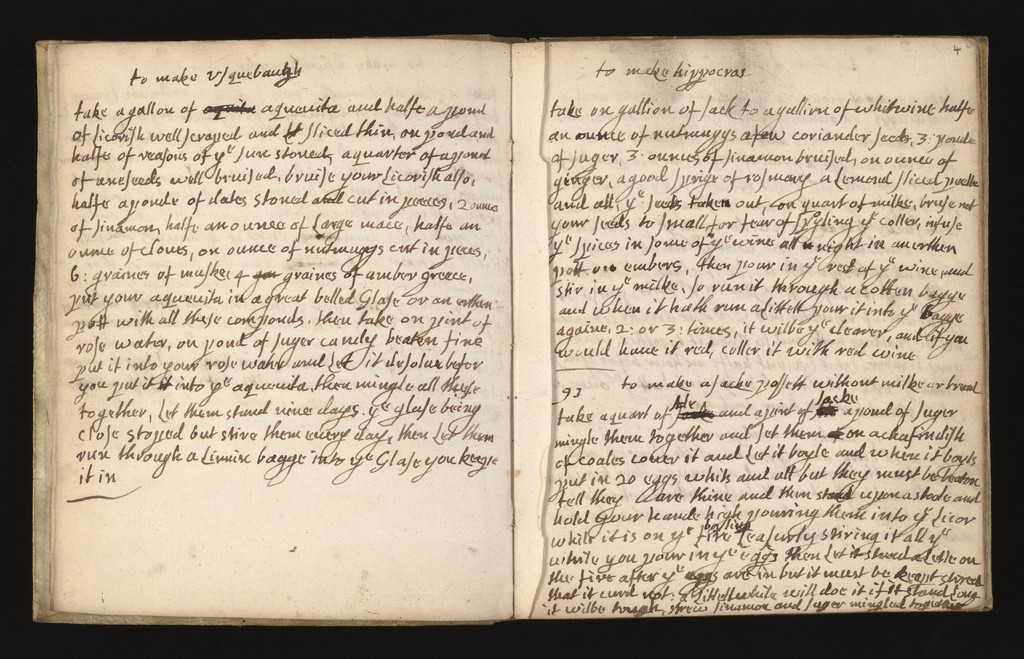 to make vsquebaugh
take a gallon of aquavita and halfe a pond
of licorish well scraped and sliced thin, on pond and
halfe of reasons of yᵉ sun stoned, a quarter of a pond
of aneseeds well bruised, bruise your Licorish also,
halfe a ponde of dates stoned and cut in peeces, 2 ounces
of sinamon, halfe an ounce of Large mace, halfe an
ounce of cloues, on ounce of nutmuggs cut in peces,
6: graines of muske, 4 graines of amber greece,
put your aquevita in a great belled Glase or an erthen
pott with all these componds. then take on point of
rose water, on pond of suger candy beaten fine
put it into your rose water and Let it desolue befor
you put it into yᵉ aquevita, then mingle all these
together, Let them stand nine dayes. yᵉ glase being
close stoped but stire them euery day, then Let them
run through a Linnin bagge into yᵉ Glase you keepe
it in
4
to make hippocras
take on gallion of sack to a gallion of whitwine halfe
an ounce of nutmuggs a few coriander seeds, 3: ponde
of suger, 3: ounces of sinamon bruised, on ounce of
ginger, a good sprige of rosmary a Lemond sliced peele
and all, yᵉ seeds taken out, on quart of milke, bruse not
your seeds to small for fear of spyling yᵉ coller, infuse
yᵉ spices in some of yᵉ wine all night in an erthen
pott on embers, then pour in yᵉ rest of yᵉ wine, and
stir in yᵉ milke, so run it through a cotten bagge
and when it hath run a littell pour it into yᵉ bagge
againe, 2: or 3: times, it wilbe yᵉ clearer, and if you
would haue it red, coller it with red wine
93
to make a sacke possett without milke or bread
take a quart of Ale and a pint of sacke a pond of suger
mingle them together and set them on a chafindish
of coales couer it and Let it boyle and when it boyls
put in 20 eggs whits and all but they must be beaten
tell they are thine and then stand upon a stoole and
hold your hande high pouring them into yᵉ Licor
while it is on yᵉ fire boyling Leasurly stiring it all yᵉ
while you pour in yᵉ eggs then Let it stand a Letle on
the fire after yᵉ eggs are in but it must be keept stired
that it curd not. a littell while will doe it if it stand Long
it wilbe tough, strew sinamon and suger mingled together